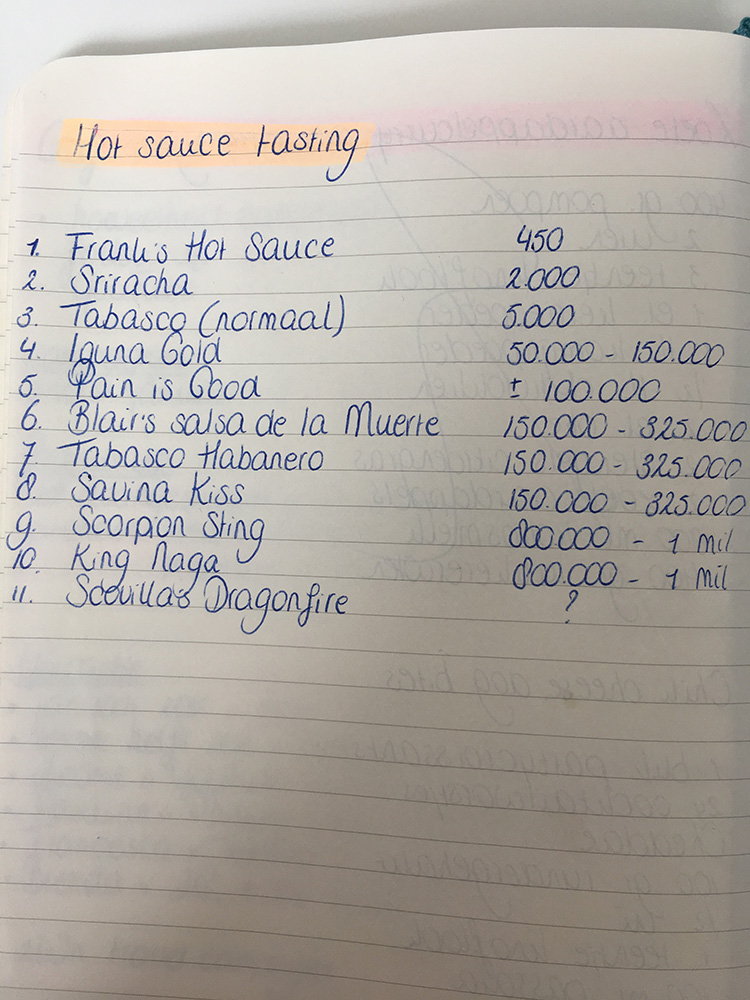 Hot sauce tasting
1. Frank's Hot Sauce 450
2. Sriracha 2.000
3. Tabasco (normaal) 5.000
4. Iguna Gold 50.000 - 150.000
5. Pain is Good ± 100.000
6. Blair's salsa de la Muerte 150.000 - 325.000
7. Tabasco Habanero 150.000 - 325.000
8. Savina Kiss 150.000 - 325.000
9. Scorpion Sting 800.000 - 1 mil
10. King Naga 800.000 - 1 mil
11. Scovilla's Dragonfire ?